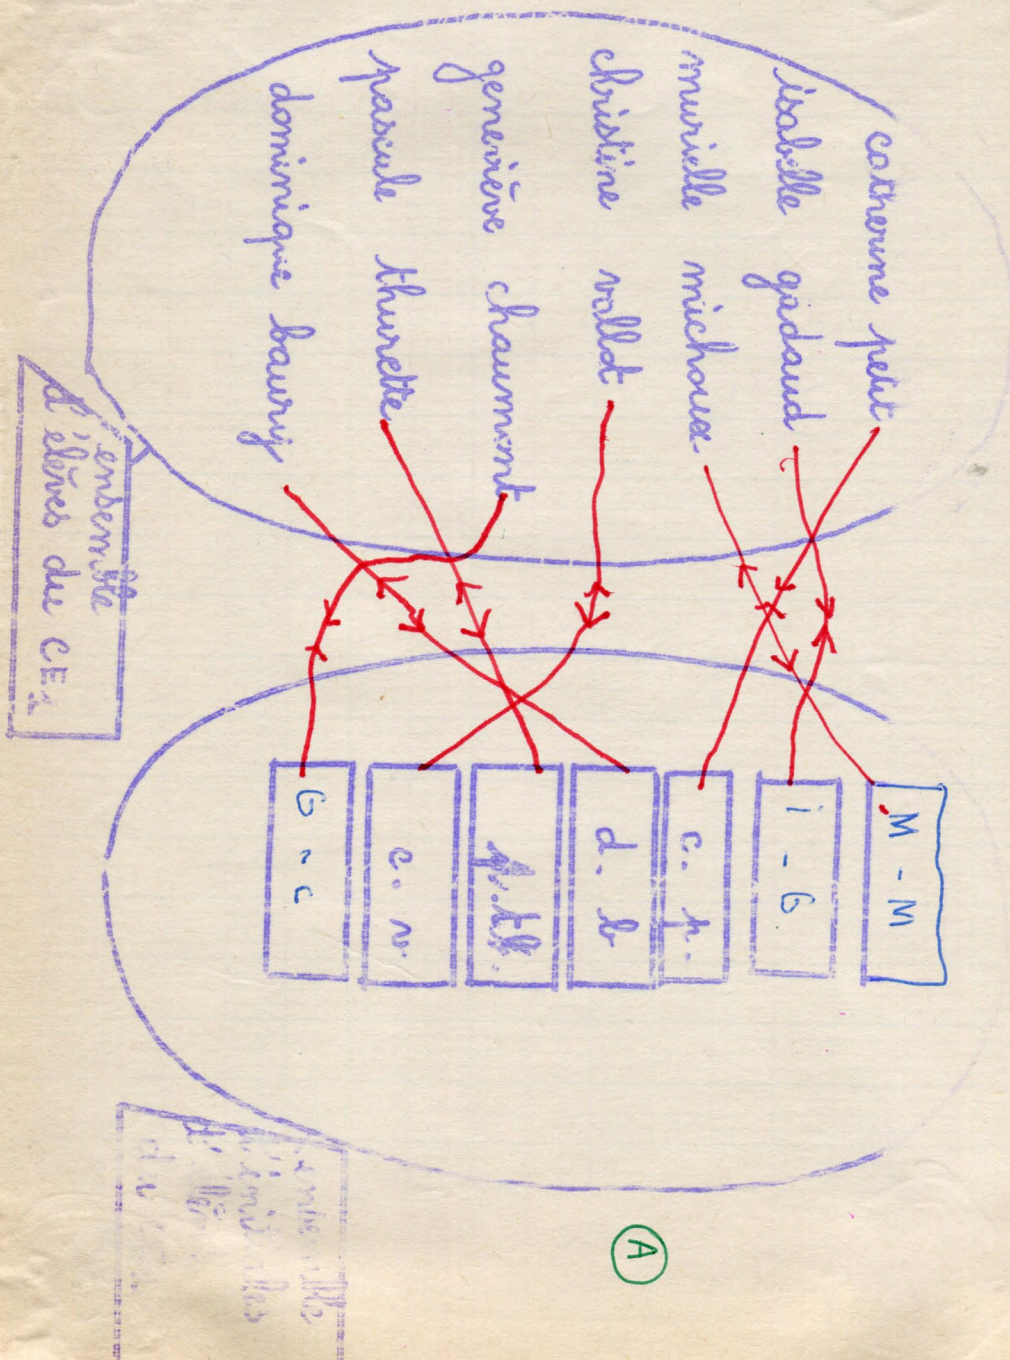 catherine petit
isabelle gadaud
murielle michoux
christine vallot
geneviève chaumont
pascale thurette
dominique baury
ensemble
d'élèves du CE1
M - M
i - G
c. p.
d. b
p. th.
c. v
G - c
ensemble
d'initiales
d'
du
A